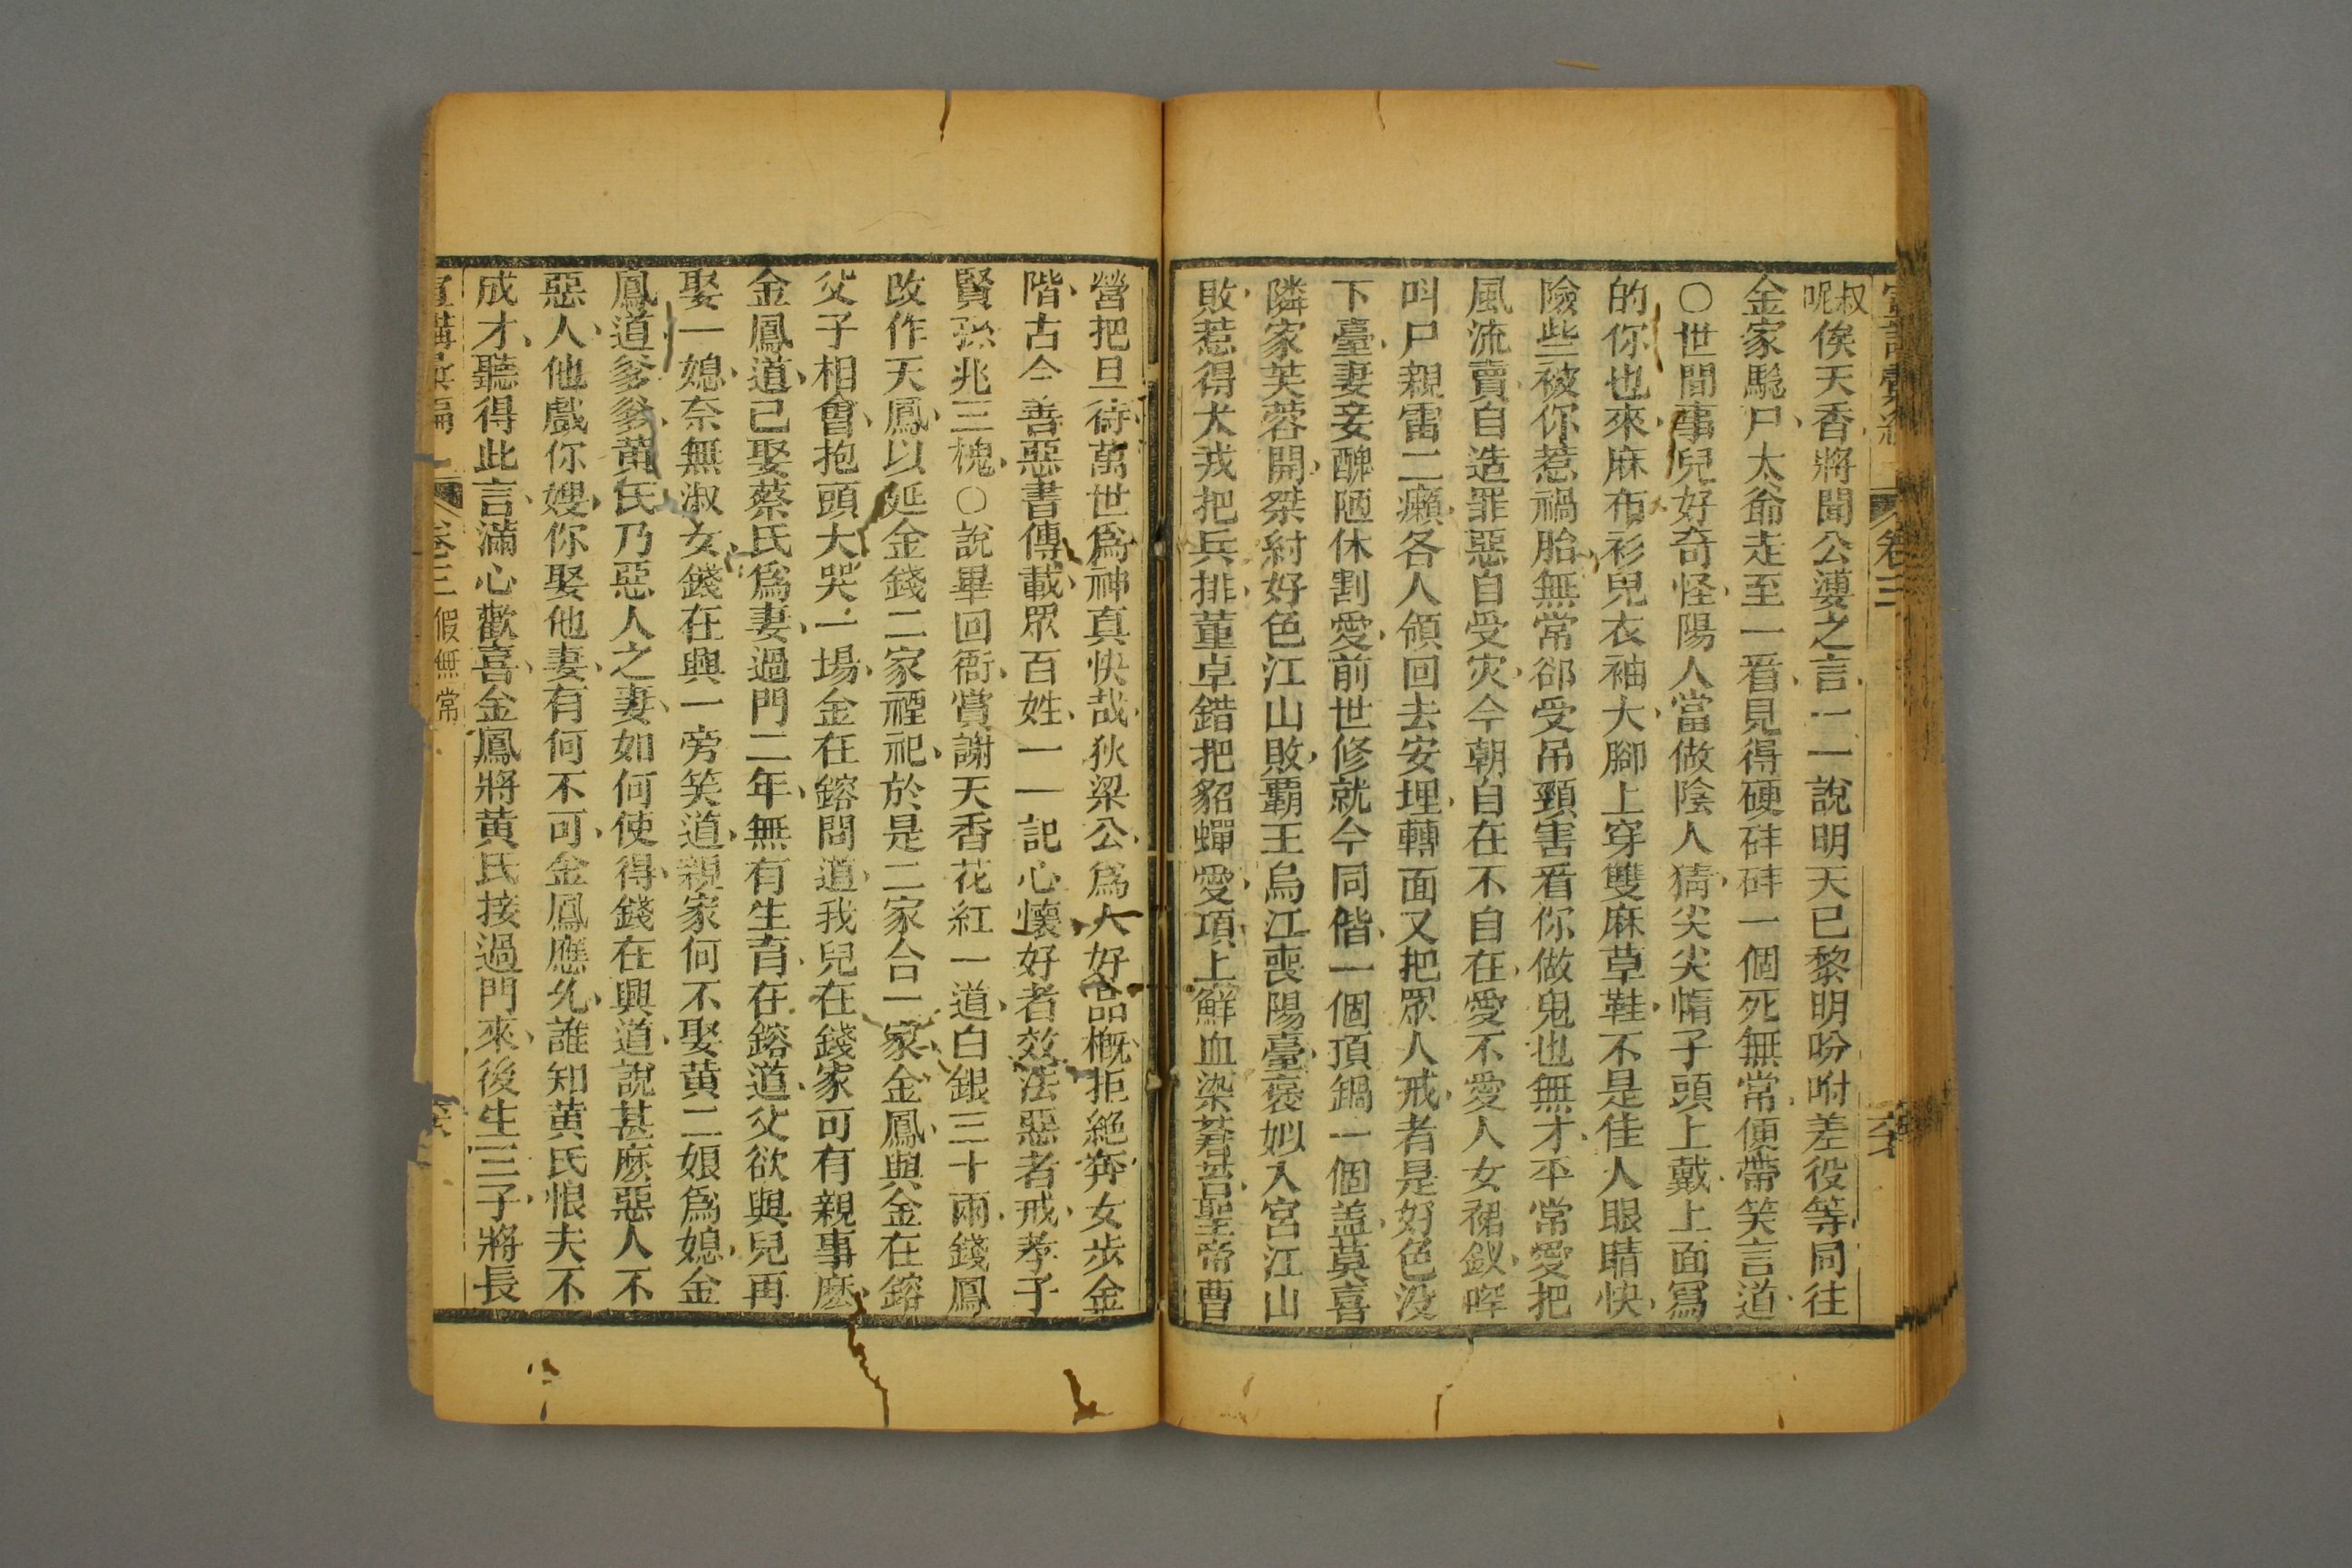 卷三
叔呢俟天香將聞公婆之言一一說明天已黎明吩咐差役等同往
金家騐尸太爺走至一看見得硬砫砫一個死無常便帶笑言道
○世間事兒好奇怪陽人當做陰人猜尖尖帽子頭上戴上面冩
的你也來麻布衫兒衣袖大腳上穿雙麻草鞋不是佳人眼睛快
險些被你惹禍胎無常郤受吊頸害看你做鬼也無才平常愛把
風流賣自造罪惡自受灾今朝自在不自在愛不愛人女裙釵喗
叫尸親雷二癩各人領回去安埋轉面又把眾人戒者是好色没
下臺妻妾醜陋休割愛前世修就今同偕一個頂鍋一個盖莫喜
隣家芙蓉開桀紂好色江山敗霸王烏江喪陽臺褒姒入宮江山
敗惹得犬戎把兵排董卓錯把貂蟬愛項上鮮血染蒼苔聖帝曹
營把旦待萬世爲神真快哉狄梁公爲人好品概拒絕奔女步金
階古今善惡書傳載眾百姓一一記心懷好者效法惡者戒孝子
賢孫兆三槐○說畢回衙賞謝天香花紅一道白銀三十兩錢鳳
改作天鳳以延金錢二家禋祀於是二家合一家金鳳與金在鎔
父子相會抱頭大哭一場金在鎔問道我兒在錢家可有親事麽
金鳳道已娶蔡氏爲妻過門二年無有生育在鎔道父欲與兒再
娶一媳奈無淑女錢在興一旁笑道親家何不娶黄二娘爲媳金
鳳道爹爹黄氏乃惡人之妻如何使得錢在興道說甚麽惡人不
惡人他戲你嫂你娶他妻有何不可金鳳應允誰知黄氏恨夫不
成才聽得此言滿心歡喜金鳳將黄氏接過門來後生三子將長
卷三 假無常